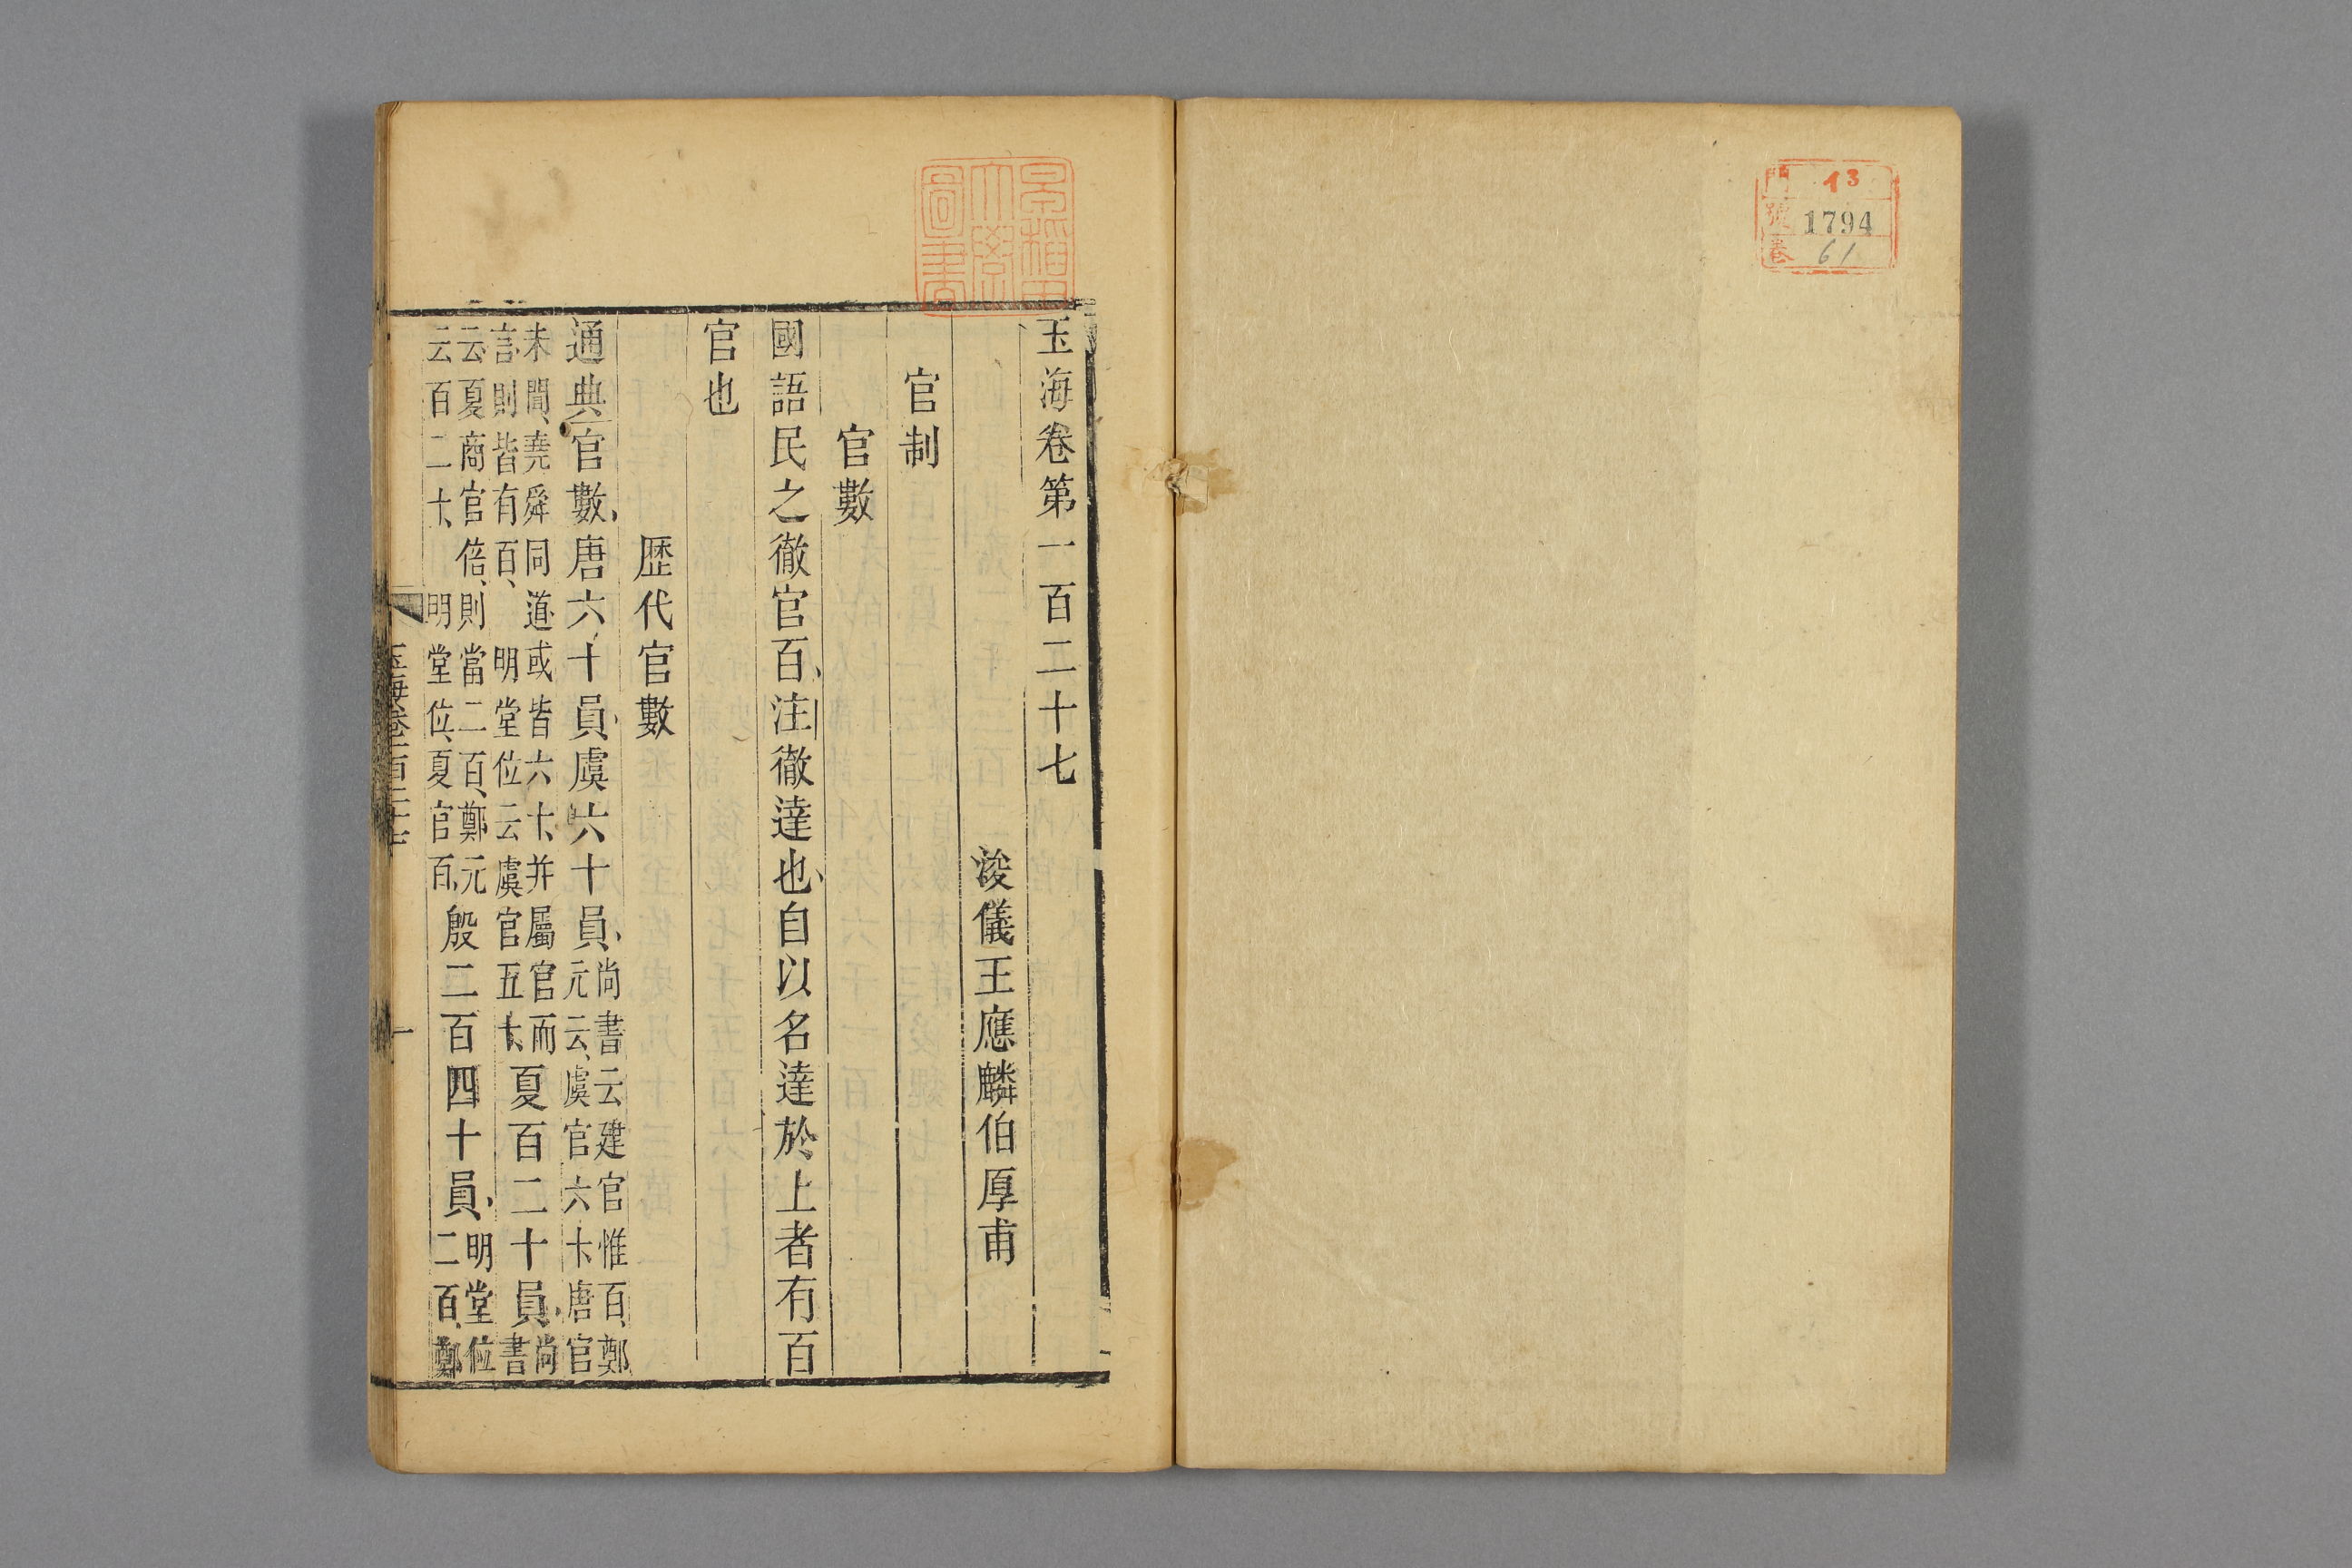 門 13
號 1794
卷 61
早稻田
大學
圖書
玉海卷第一百二十七
浚儀王應麟伯厚甫
官制
官數
國語民之徹官百、注徹達也、自以名達於上者有百
官也
歴代官數
通典官數、唐六十員、虞六十員、尚書云建官惟百、鄭元云、虞官六十、唐官
未聞、堯舜同道、或皆六十、并屬官而言、則皆有百、明堂位云虞官五十、夏百二十員、尚書
云、夏商官倍、則當二百、鄭元云百二十、明堂位、夏官百、殷二百四十員、明堂位二百、鄭
玉海卷一百二十七
一